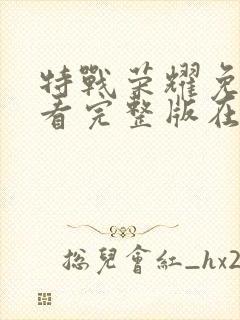 特戰荣耀免
看完整版在
总兒會紅_hx2